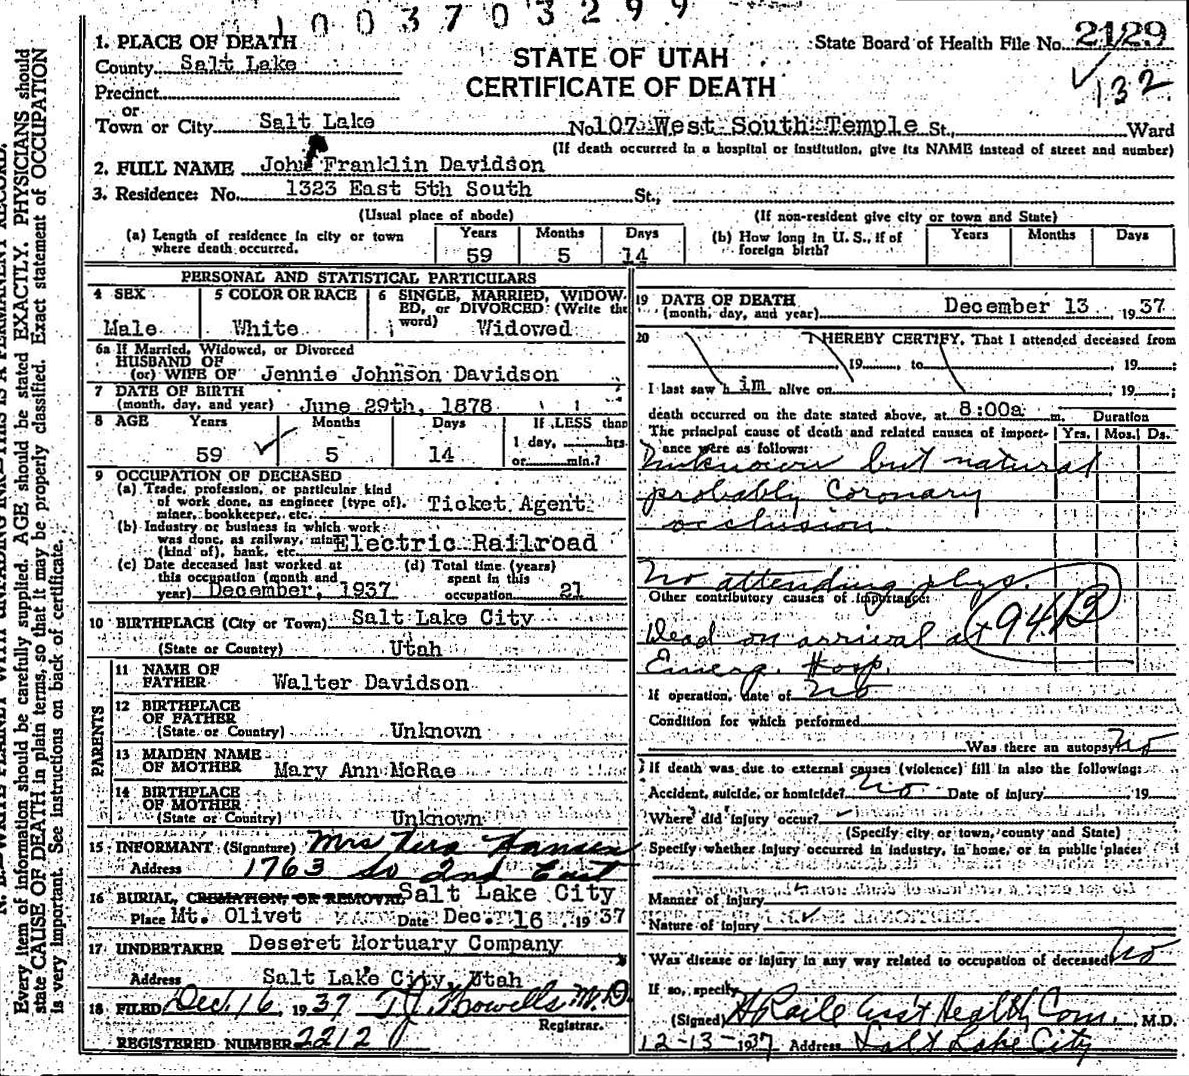 1003703299
1. PLACE OF DEATH
County Salt Lake
Precinct
or
Town or City Salt Lake
STATE OF UTAH
CERTIFICATE OF DEATH
State Board of Health File No. 2129
132
No. 107 West South Temple St., Ward
(If death occurred in a hospital or institution, give its NAME instead of street and number)
2. FULL NAME John Franklin Davidson
3. Residence: No. 1323 East 5th South St.,
(Usual place of abode)
(If non-resident give city or town and State)
(a) Length of residence in city or town where death occurred.
Years Months Days
59 5 14
(b) How long in U. S., if of foreign birth?
Years Months Days
PERSONAL AND STATISTICAL PARTICULARS
4 SEX
Male
5 COLOR OR RACE
White
6 SINGLE, MARRIED, WIDOW-
ED, or DIVORCED (Write the
word) Widowed
6a If Married, Widowed, or Divorced
HUSBAND OF
(or) WIFE OF Jennie Johnson Davidson
7 DATE OF BIRTH
(month, day, and year) June 29th, 1878
8 AGE Years Months Days If LESS than
1 day, hrs.
or min.?
59 5 14
9 OCCUPATION OF DECEASED
(a) Trade, profession, or particular kind
of work done, as engineer (type of),
miner, bookkeeper, etc. Ticket Agent
(b) Industry or business in which work
was done, as railway, mine
(kind of), bank, etc. Electric Railroad
(c) Date deceased last worked at
this occupation (month and
year) December, 1937
(d) Total time (years)
spent in this
occupation 21
10 BIRTHPLACE (City or Town) Salt Lake City
(State or Country) Utah
PARENTS
11 NAME OF
FATHER Walter Davidson
12 BIRTHPLACE
OF FATHER
(State or Country) Unknown
13 MAIDEN NAME
OF MOTHER Mary Ann McRae
14 BIRTHPLACE
OF MOTHER
(State or Country) Unknown
15 INFORMANT (Signature) Mrs Hansen
Address 1763 So 2nd East
16 BURIAL, CREMATION, OR REMOVAL Salt Lake City
Place Mt. Olivet Date Dec. 16 1937
17 UNDERTAKER Deseret Mortuary Company
Address Salt Lake City, Utah
18 FILED Dec 16, 1937 T J Howells M.D.
Registrar.
REGISTERED NUMBER 2212
19 DATE OF DEATH
(month, day, and year) December 13, 1937
20 I HEREBY CERTIFY, That I attended deceased from
19 , to , 19 ;
I last saw h im alive on , 19 ;
death occurred on the date stated above, at 8:00a m.
Duration
The principal cause of death and related causes of import-
ance were as follows:
Yrs. Mos. Ds.
Unknown but natural
probably Coronary
occlusion
No attending phys.
Other contributory causes of importance:
94B
Dead on arrival at
Emerg. Hosp.
If operation, date of no
Condition for which performed
Was there an autopsy no
If death was due to external causes (violence) fill in also the following:
Accident, suicide, or homicide? no Date of injury 19
Where did injury occur?
(Specify city or town, county and State)
Specify whether injury occurred in industry, in home, or in public place:
Manner of injury
Nature of injury
Was disease or injury in any way related to occupation of deceased no
If so, specify
(Signed) Ass't Health Com. M.D.
12-13-1937 Address Salt Lake City
Every item of information should be carefully supplied. AGE should be stated EXACTLY. PHYSICIANS should
state CAUSE OF DEATH in plain terms, so that it may be properly classified. Exact statement of OCCUPATION
is very important. See instructions on back of certificate.